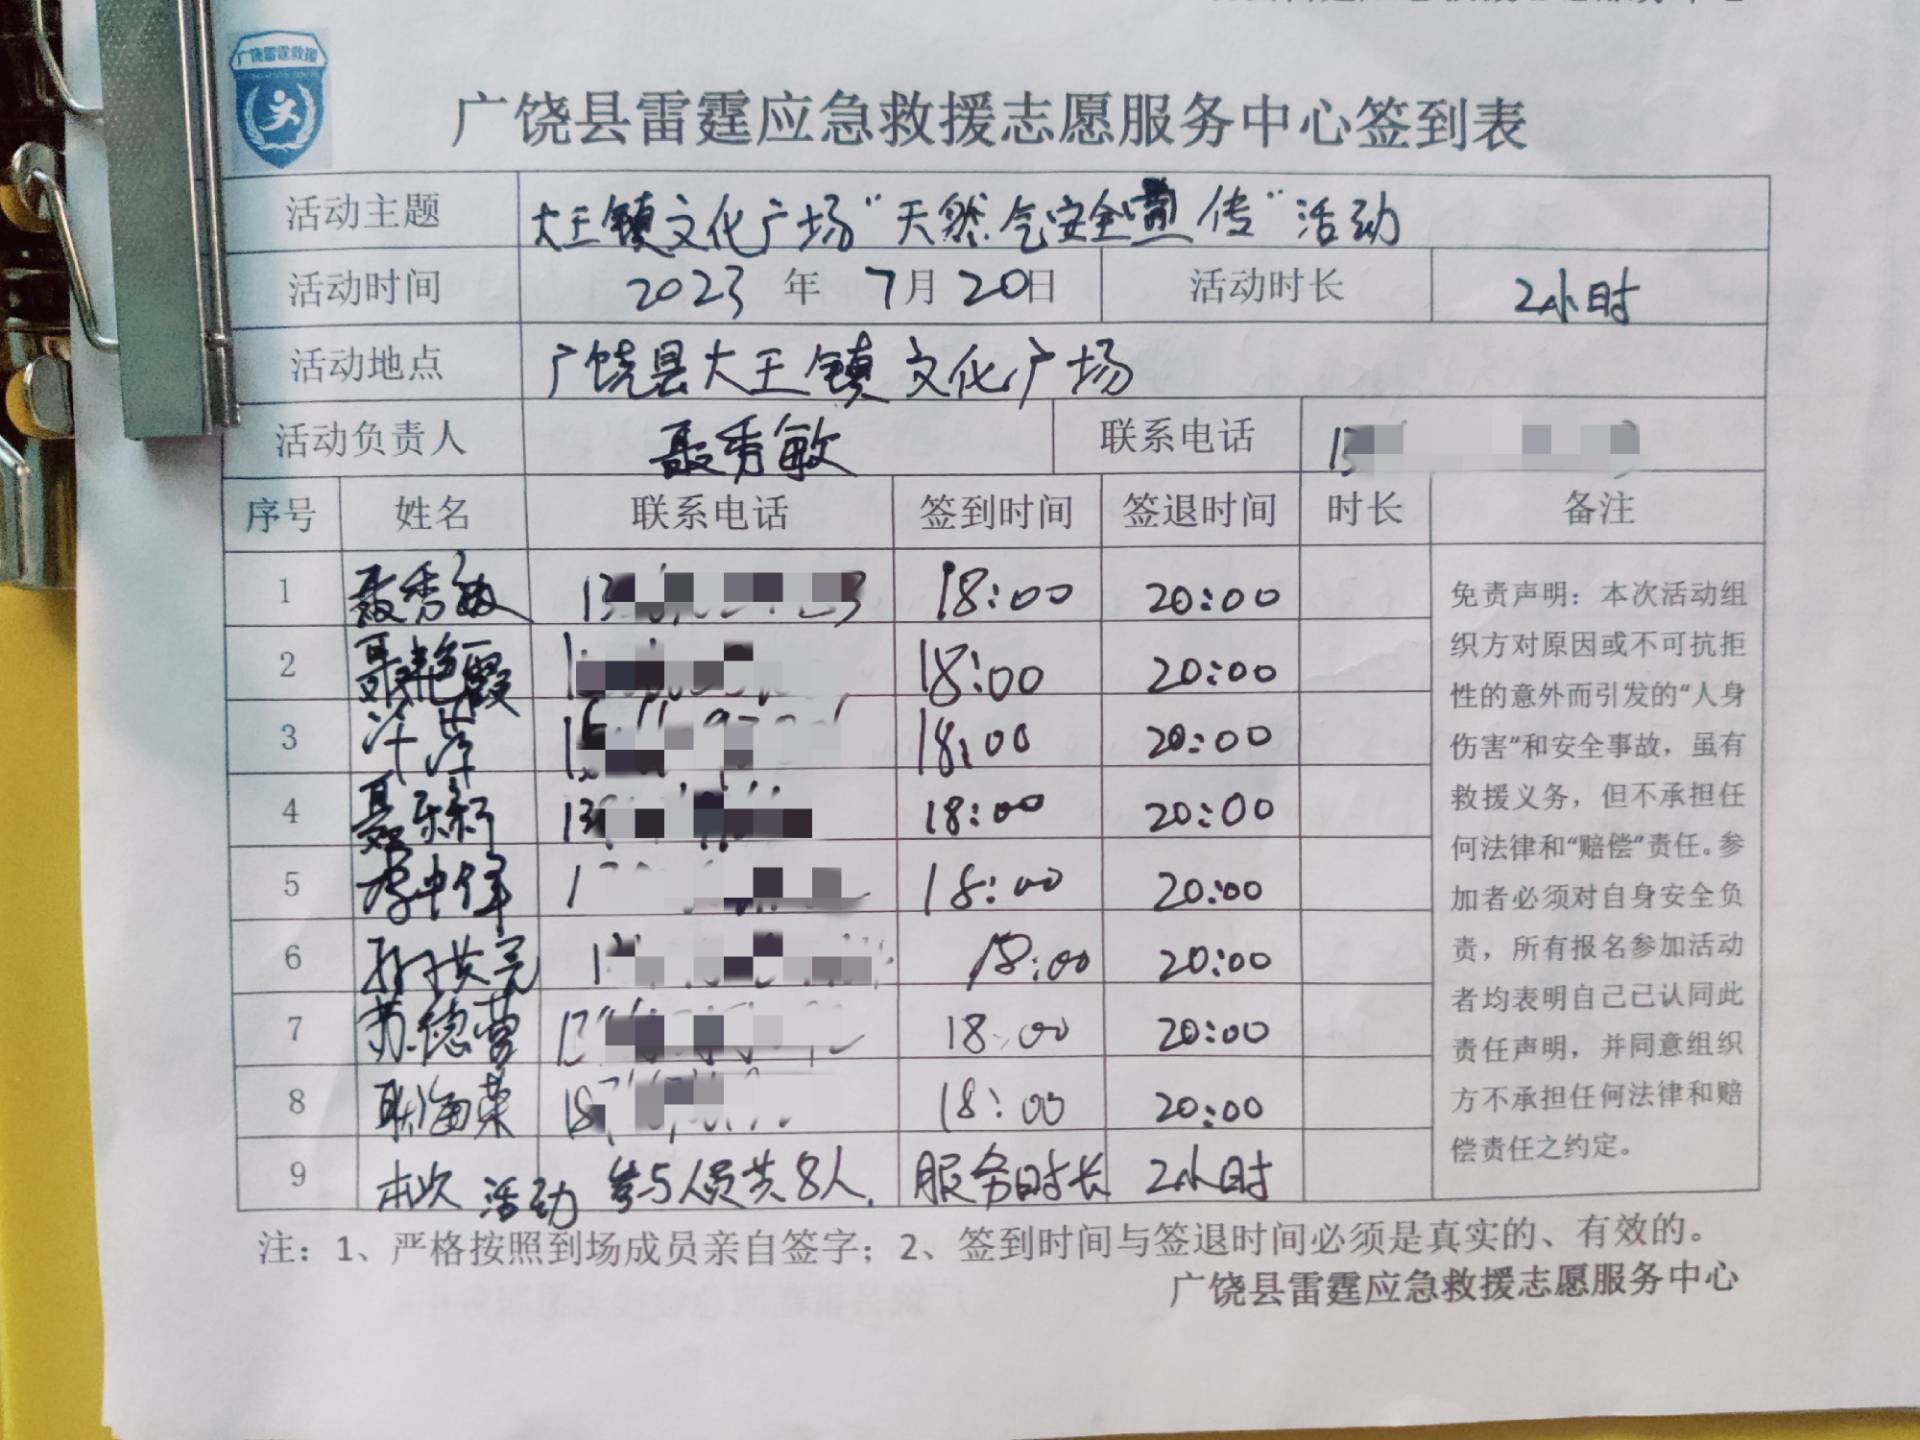 广饶雷霆救援
广饶县雷霆应急救援志愿服务中心签到表
活动主题 大王镇文化广场"天然气安全宣传"活动
活动时间 2023 年 7月 20日 活动时长 2小时
活动地点 广饶县大王镇文化广场
活动负责人 聂秀敏 联系电话 13
序号 姓名 联系电话 签到时间 签退时间 时长 备注
1 聂秀敏 13 18:00 20:00
2 聂艳霞 1 18:00 20:00
3 1 18:00 20:00
4 聂乐新 13 18:00 20:00
5 李中伟 1 18:00 20:00
6 孙洪亮 1 18:00 20:00
7 苏德营 1 18:00 20:00
8 耿海荣 18 18:00 20:00
9 本次活动参与人员共8人. 服务时长 2小时
免责声明：本次活动组
织方对原因或不可抗拒
性的意外而引发的"人身
伤害"和安全事故，虽有
救援义务，但不承担任
何法律和"赔偿"责任。参
加者必须对自身安全负
责，所有报名参加活动
者均表明自己已认同此
责任声明，并同意组织
方不承担任何法律和赔
偿责任之约定。
注：1、严格按照到场成员亲自签字；2、签到时间与签退时间必须是真实的、有效的。
广饶县雷霆应急救援志愿服务中心